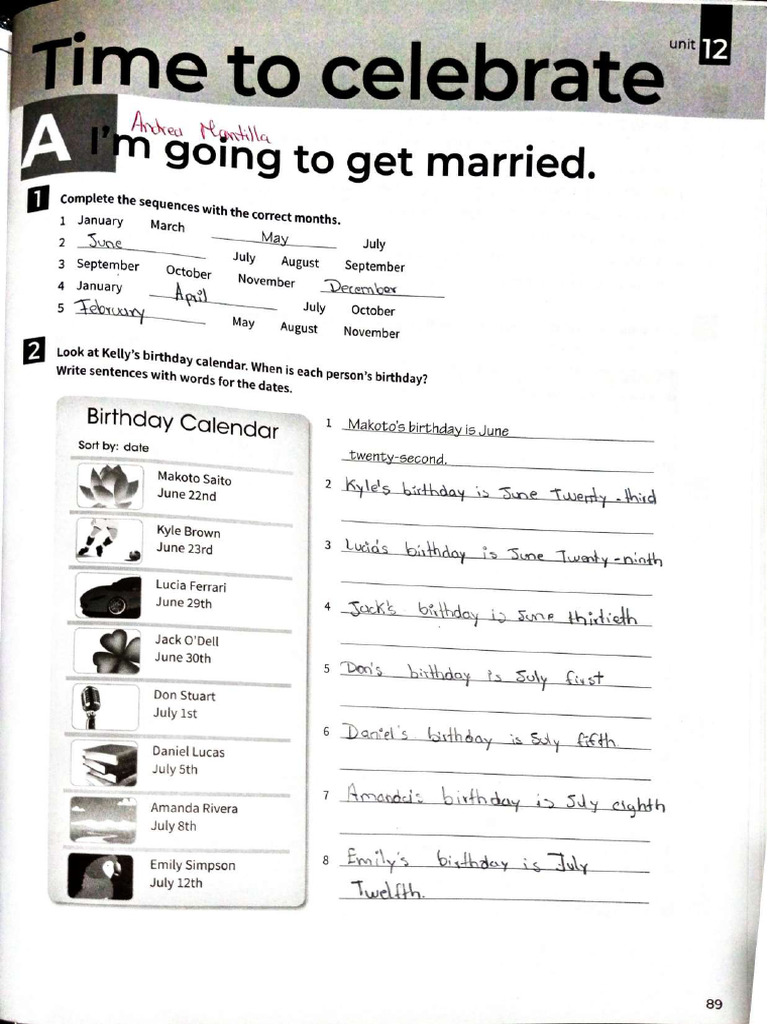 unit 12
Time to celebrate
Andrea Mantilla
A I'm going to get married.
1 Complete the sequences with the correct months.
1 January March May July
2 June July August September
3 September October November December
4 January April July October
5 February May August November
2 Look at Kelly's birthday calendar. When is each person's birthday?
Write sentences with words for the dates.
Birthday Calendar
Sort by: date
Makoto Saito
June 22nd
Kyle Brown
June 23rd
Lucia Ferrari
June 29th
Jack O'Dell
June 30th
Don Stuart
July 1st
Daniel Lucas
July 5th
Amanda Rivera
July 8th
Emily Simpson
July 12th
1 Makoto's birthday is June
twenty-second.
2 Kyle's birthday is June Twenty-third
3 Lucia's birthday is June Twenty-ninth
4 Jack's birthday is June thirtieth
5 Don's birthday is July first
6 Daniel's birthday is July fifth
7 Amanda's birthday is July eighth
8 Emily's birthday is July
Twelfth.
89